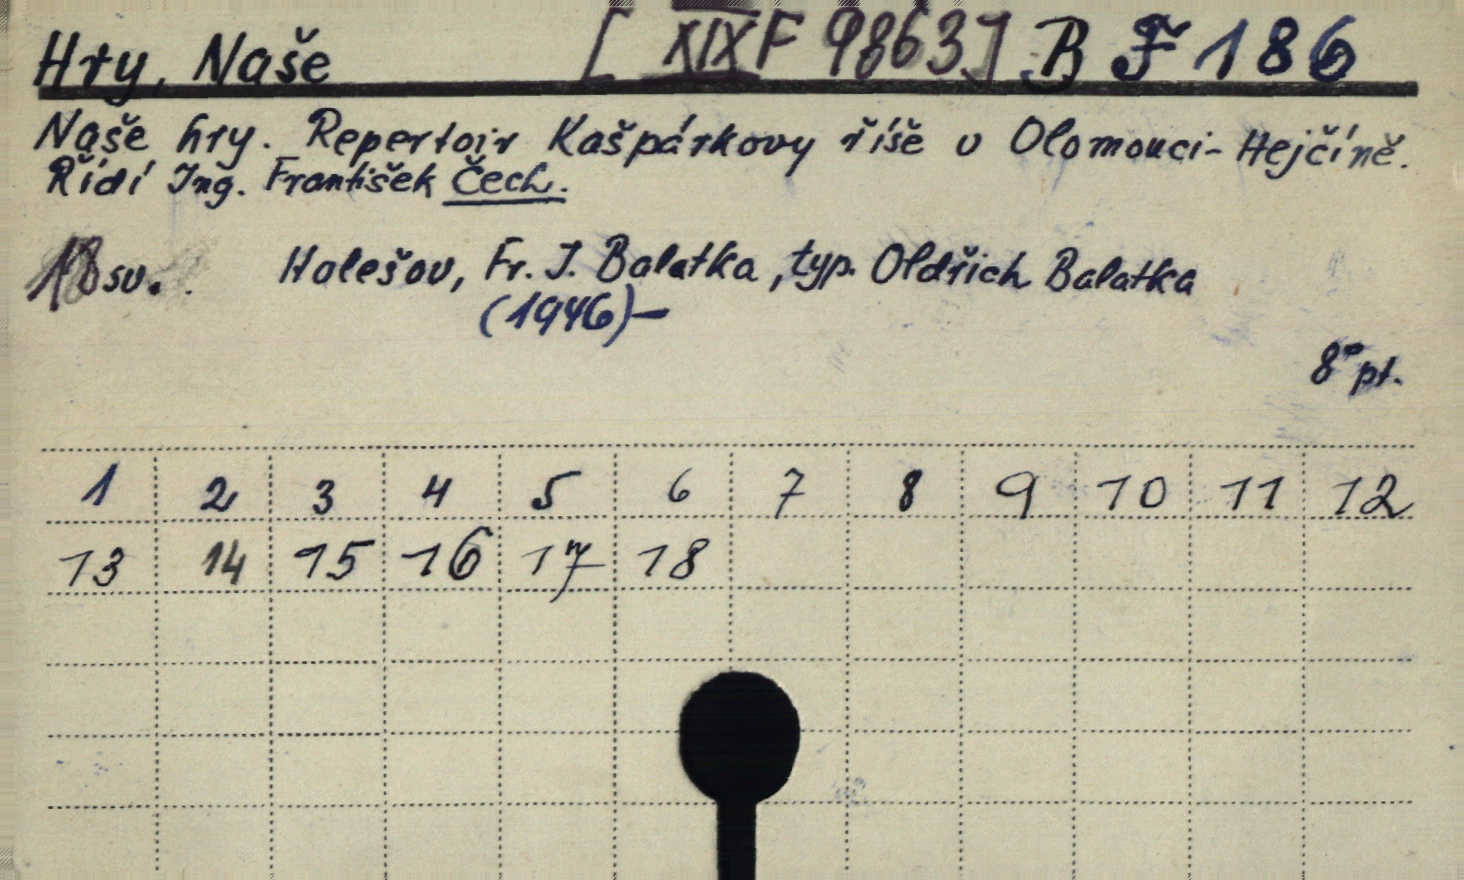 Hry, Naše [XIX F 9863] B F 186
Naše hry. Repertoir Kašpárkovy říše v Olomouci-Hejčíně.
Řídí Ing. František Čech.
18 sv. Holešov, Fr. J. Balatka, typ. Oldřich Balatka
(1946)-
8° pt.
1 2 3 4 5 6 7 8 9 10 11 12
13 14 15 16 17 18